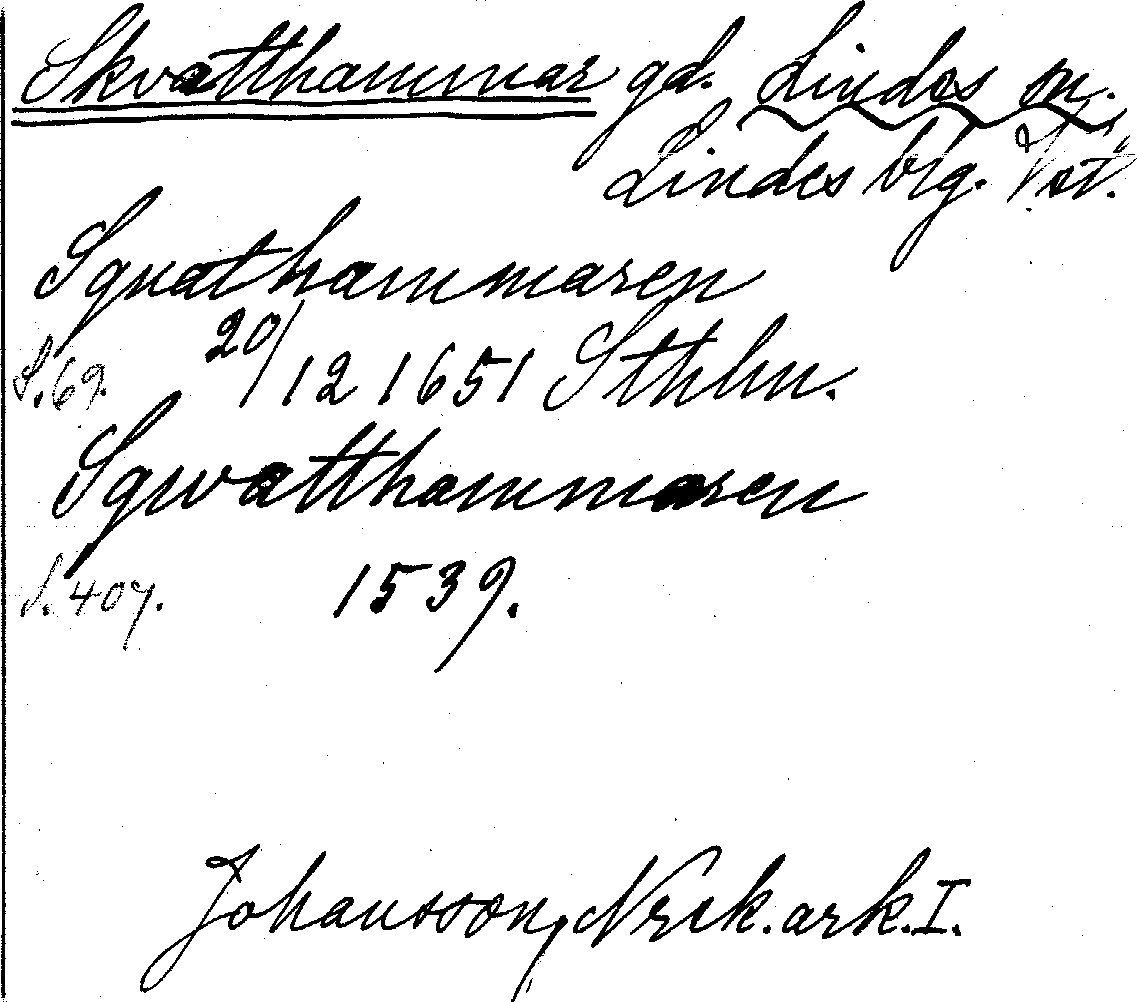 Skvatthammar gd. Lindes sn.
Lindes blg. Vst.
Sqvathammaren
S. 69. 20/12 1651 Sthlm.
Sqwatthammaren
S. 407. 1539.
Johansson, Nrck. ark. I.